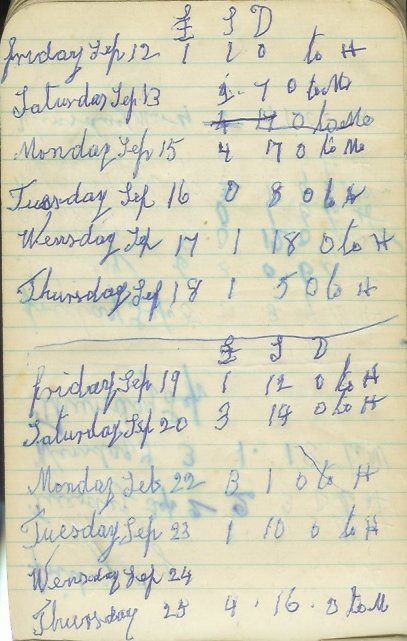 £ S D
Friday Sep 12 1 1 0 to H
Saturday Sep 13 1 - 7 0 to Me
4 17 0 to Me
Monday Sep 15 4 7 0 to Me
Tuesday Sep 16 0 8 0 to H
Wensday Sep 17 1 18 0 to H
Thursday Sep 18 1 5 0 to H
£ S D
Friday Sep 19 1 12 0 to H
Saturday Sep 20 3 14 0 to H
Monday Seb 22 3 1 0 to H
Tuesday Sep 23 1 10 0 to H
Wensday Sep 24
Thursday 25 4 . 16 . 0 to M